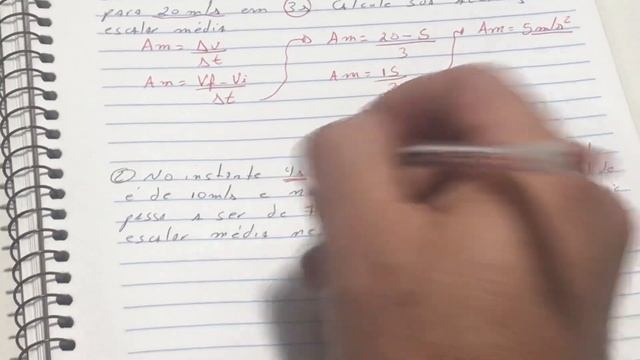 para 20 m/s em 3s Calcule sua
escalar média
Am = Δv/Δt
Am = Vf - Vi/Δt
Am = 20 - 5/3
Am = 15
Am = 5 m/s²
② No instante 4s
é de 10 m/s e n
passa a ser de 7
escalar média ne